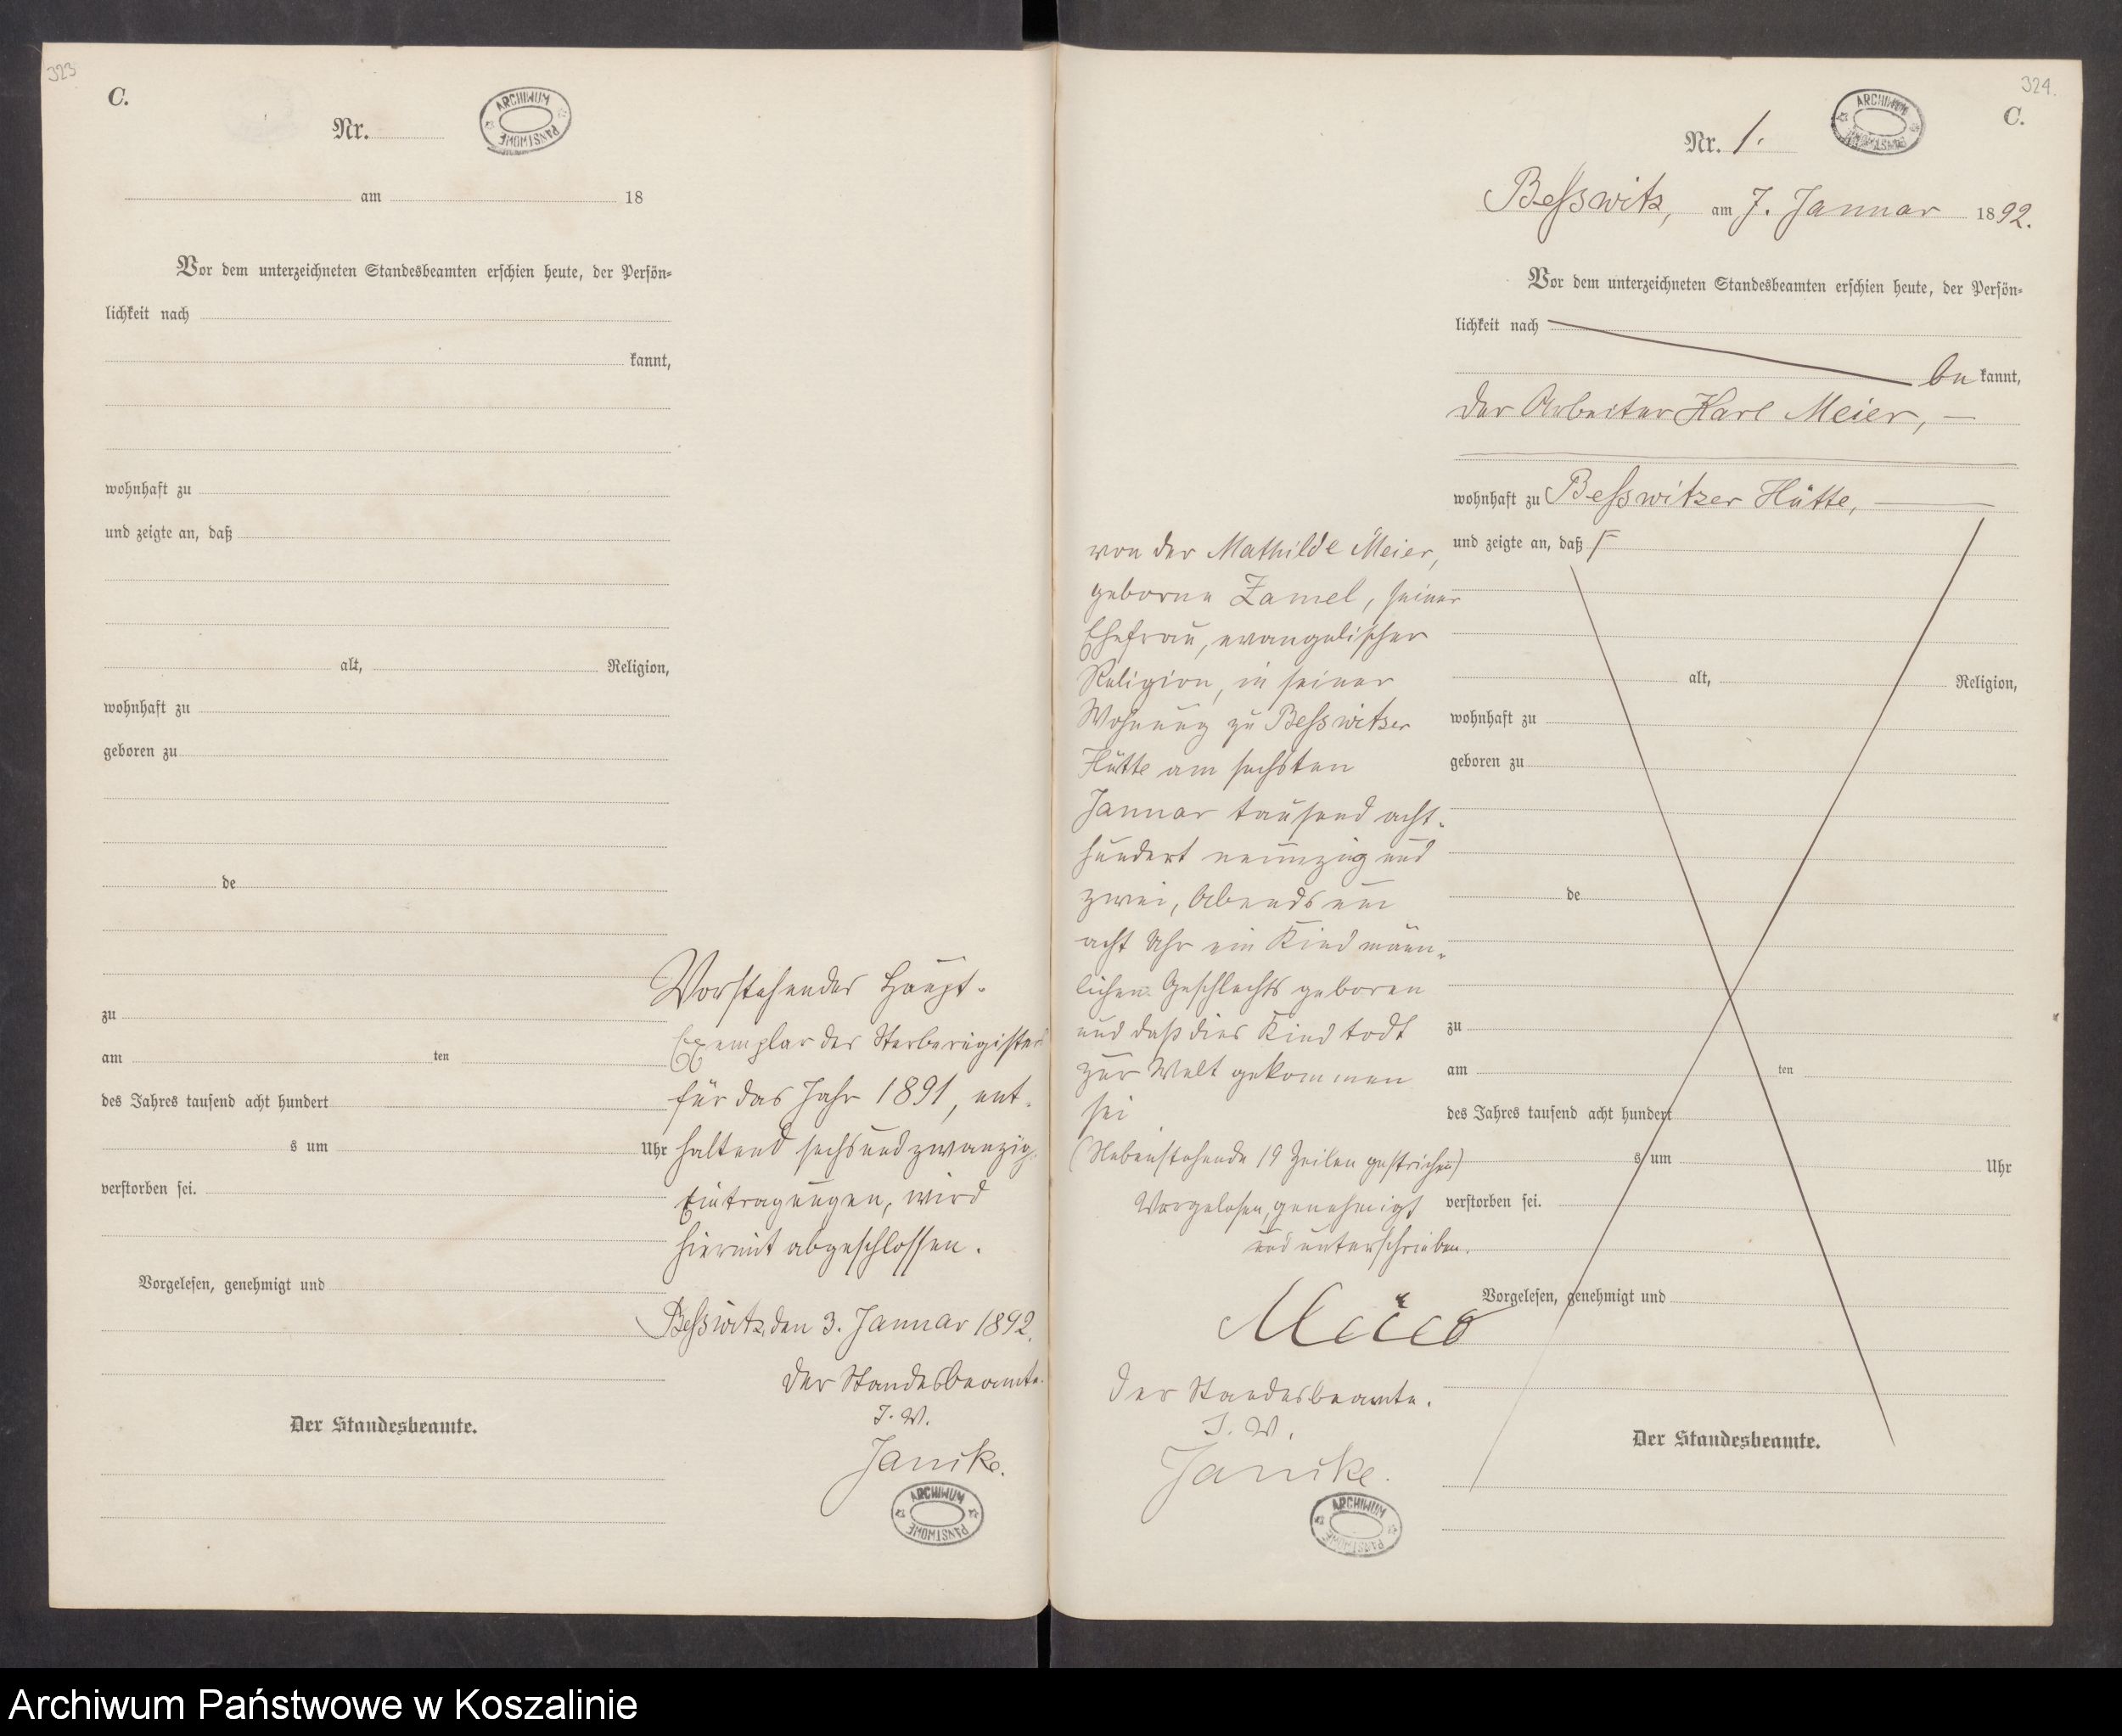 323
C.
Nr.
ARCHIWUM PAŃSTWOWE
am 18
Vor dem unterzeichneten Standesbeamten erschien heute, der Persön-
lichkeit nach
kannt,
wohnhaft zu
und zeigte an, daß
alt, Religion,
wohnhaft zu
geboren zu
de
zu
am ten
des Jahres tausend acht hundert
s um Uhr
verstorben sei.
Vorgelesen, genehmigt und
Der Standesbeamte.
Vorstehendes Haupt-
Exemplar des Sterberegisters
für das Jahr 1891, ent-
haltend sechsundzwanzig
Eintragungen, wird
hiermit abgeschlossen.
Beßwitz, den 3. Januar 1892.
Der Standesbeamte.
I. V.
Janike.
ARCHIWUM PAŃSTWOWE
324.
C.
Nr. 1.
ARCHIWUM PAŃSTWOWE
Beßwitz, am 7. Januar 1892.
Vor dem unterzeichneten Standesbeamten erschien heute, der Persön-
lichkeit nach
be kannt,
der Arbeiter Karl Meier,
wohnhaft zu Beßwitzer Hütte,
und zeigte an, daß
alt, Religion,
wohnhaft zu
geboren zu
de
zu
am ten
des Jahres tausend acht hundert
s um Uhr
verstorben sei.
Vorgelesen, genehmigt und
Der Standesbeamte.
von der Mathilde Meier,
geborne Zamel, seiner
Ehefrau, evangelischer
Religion, in seiner
Wohnung zu Beßwitzer
Hütte am sechsten
Januar tausend acht-
hundert neunzig und
zwei, Abends um
acht Uhr ein Kind männ-
lichen Geschlechts geboren
und daß dies Kind todt
zur Welt gekommen
sei
(Nebenstehende 19 Zeilen gestrichen)
Vorgelesen, genehmigt
und unterschrieben.
Meier
Der Standesbeamte.
I. V.
Janike.
ARCHIWUM PAŃSTWOWE
Archiwum Państwowe w Koszalinie